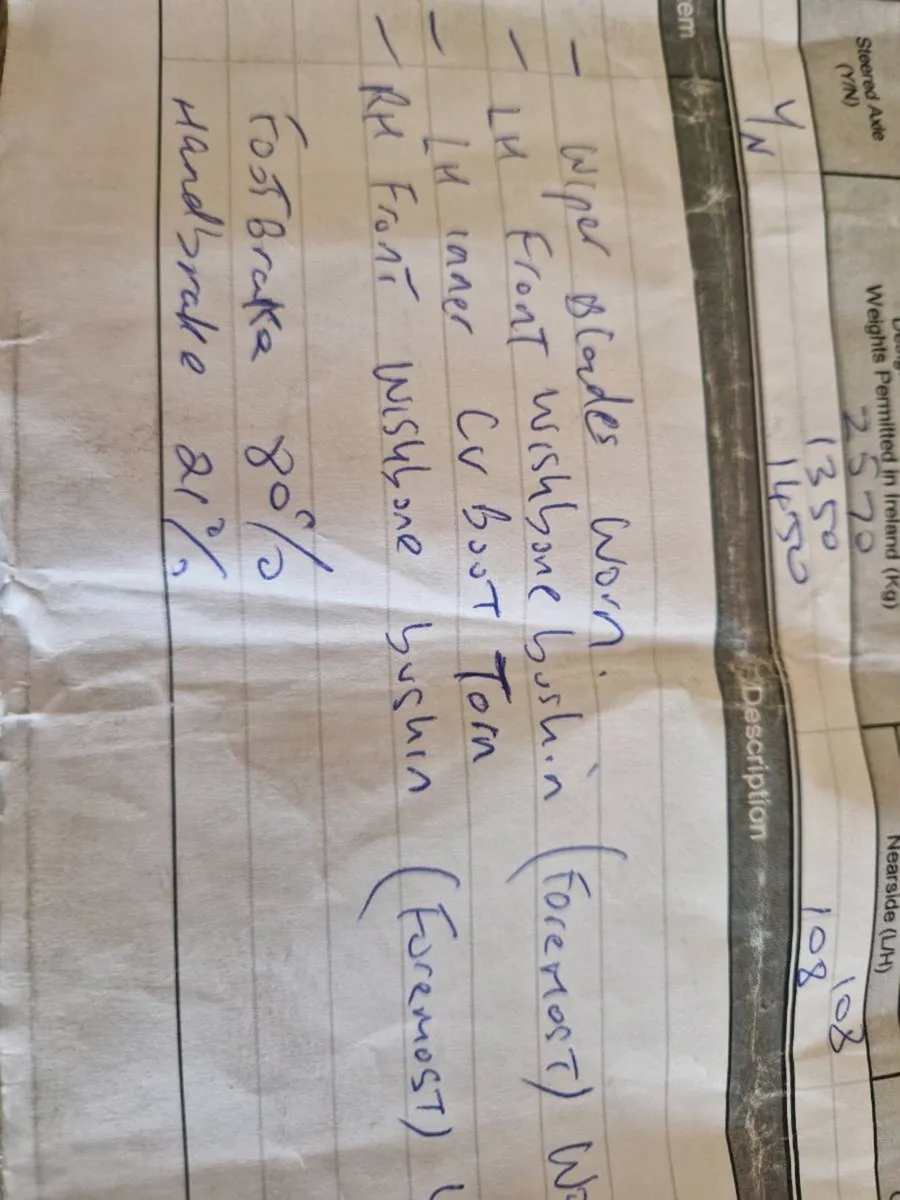 Steered Axle
(Y/N)
Weights Permitted in Ireland (Kg)
Nearside (L/H)
2570
1350
108
Y/N
1450
108
em
Description
- Wiper Blades Worn.
- LH Front Wishbone bushin (Foremost)
- LH inner CV Boot Torn
- RH Front Wishbone bushin (Foremost)
FootBrake 80%
Handbrake 21%